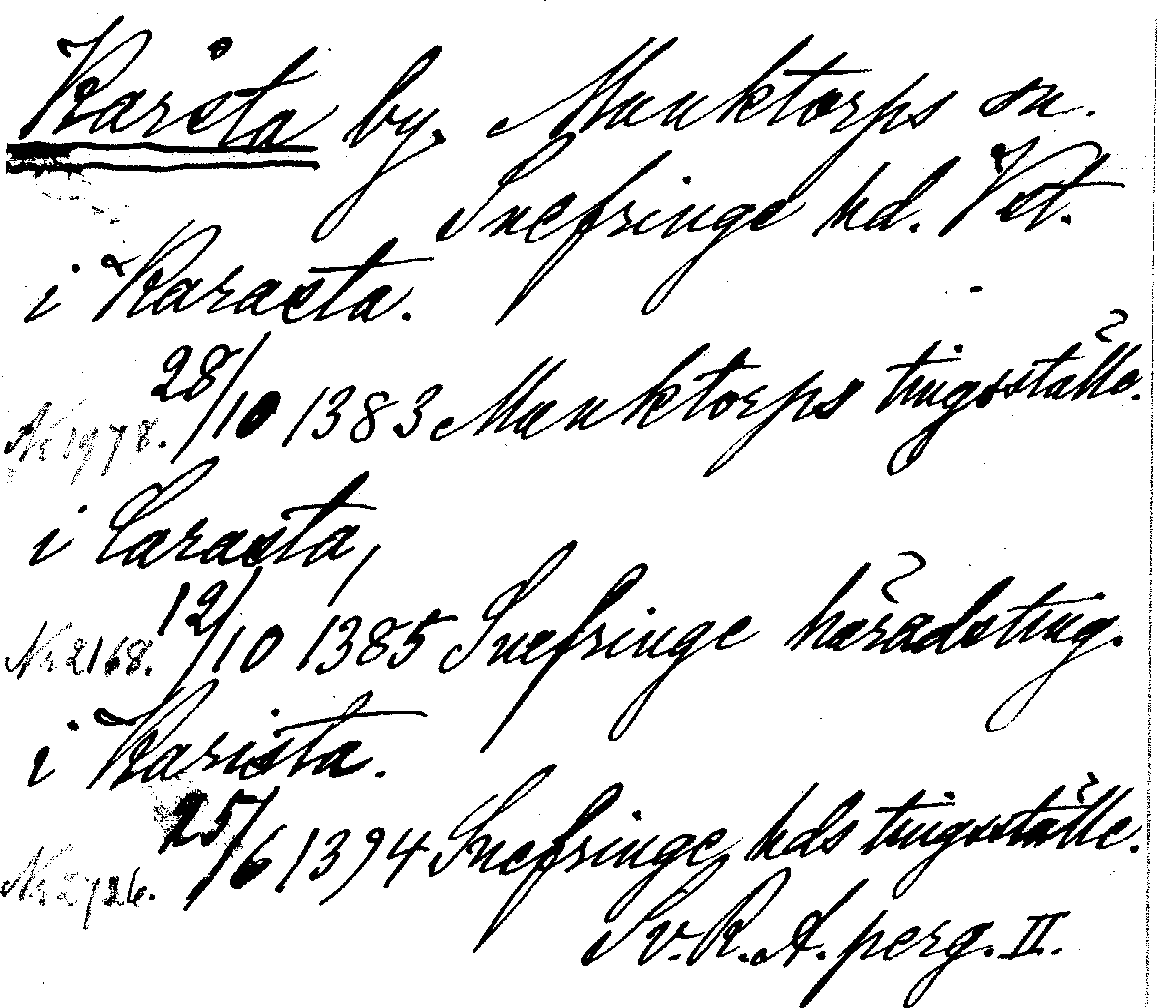 Kårsta by. Munktorps sn.
Snefringe hd. Vst.
i Karaeta.
Nr 1978. 28/10 1383 Munktorps tingsställe.
i Caraeta,
Nr 2168. 12/10 1385 Snefringe häradsting.
i Karista.
Nr 2726. 25/6 1394 Snefringe hds tingsställe.
Sv. R. A. perg. II.